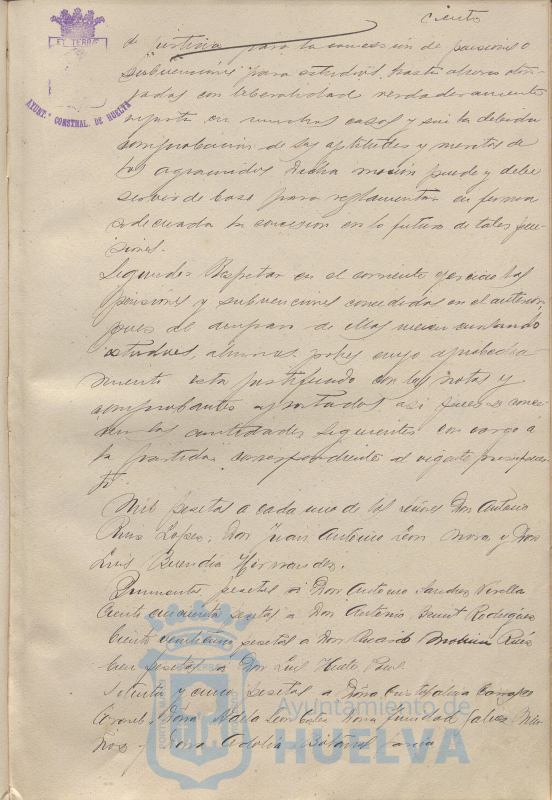 ciento
de justicia para la concesión de pensiones o
subvenciones para estudios, hasta ahora otor-
gadas con liberalidad verdaderamente
en muchos casos y sin la debida
comprobación de las aptitudes y meritos de
los agraciados. Dicha moción puede y debe
servir de base para reglamentar en forma
adecuada la concesion en lo futuro de tales pen-
siones.
Segundo: Respetar en el corriente ejercicio las
pensiones y subvenciones concedidas en el anterior
pues al amparo de ellas vienen cursando
estudios, alumnos pobres cuyo aprovecha-
miento esta justificado con las notas y
comprobantes aportados asi pues se conce-
den las cantidades siguientes con cargo a
la partida correspondiente al vigente presupues-
to.
Mil pesetas a cada uno de los señores Don Antonio
Ruiz Lopez, Don Juan Antonio Leon Mora y Don
Luis Buendía Hernandez.
Quinientas pesetas a Don Antonio
Ciento cincuenta pesetas a Don Antonio Rodriguez
Ciento pesetas a Don Ricardo Molina Ruiz
Cien pesetas a Don Luis
Setenta y cinco pesetas a Doña
Doña María Leon Doña Trinidad Galvez
y Doña Adolia
ET TERRAE
AYUNT.º CONSTNAL. DE HUELVA
PORTUS MARIS
ET TERRAE
Ayuntamiento de
HUELVA